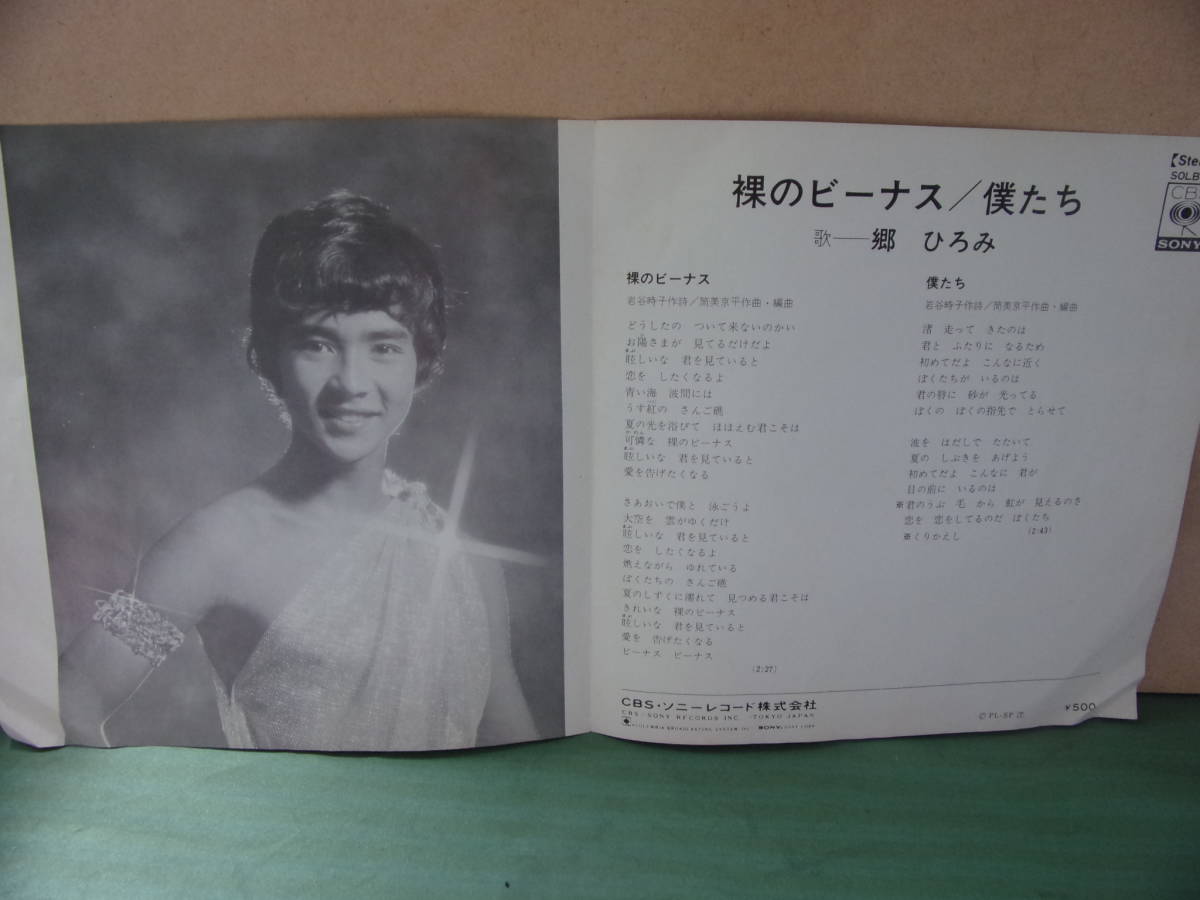 【Ste
SOLB
CBS
SONY
裸のビーナス／僕たち
歌──郷 ひろみ
裸のビーナス
岩谷時子作詩／筒美京平作曲・編曲
どうしたの ついて来ないのかい
お陽さまが 見てるだけだよ
眩しいな 君を見ていると
恋を したくなるよ
青い海 波間には
うす紅の さんご礁
夏の光を浴びて ほほえむ君こそは
可憐な 裸のビーナス
眩しいな 君を見ていると
愛を告げたくなる
さあおいで僕と 泳ごうよ
大空を 雲がゆくだけ
眩しいな 君を見ていると
恋を したくなるよ
燃えながら ゆれている
ぼくたちの さんご礁
夏のしずくに濡れて 見つめる君こそは
きれいな 裸のビーナス
眩しいな 君を見ていると
愛を 告げたくなる
ビーナス ビーナス
(2:27)
僕たち
岩谷時子作詩／筒美京平作曲・編曲
渚 走って きたのは
君と ふたりに なるため
初めてだよ こんなに近く
ぼくたちが いるのは
君の唇に 砂が 光ってる
ぼくの ぼくの指先で とらせて
波を はだしで たたいて
夏の しぶきを あげよう
初めてだよ こんなに 君が
目の前に いるのは
※君のうぶ 毛 から 虹が 見えるのさ
恋を 恋をしてるのだ ぼくたち
(2:43)
※くりかえし
CBS・ソニーレコード株式会社
CBS・SONY RECORDS INC. ・TOKYO JAPAN
COLUMBIA BROADCASTING SYSTEM INC. SONY
Ⓒ PL-SP
¥500